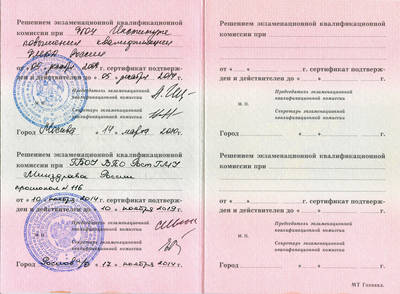 Решением экзаменационной квалификационной
комиссии при ФГОУ Институте
повышения квалификации
ФМБА России
от «05» декабря 2009 г. сертификат подтвержден
и действителен до «05» декабря 2014 г.
Председатель экзаменационной
квалификационной комиссии
М.П.
Секретарь экзаменационной
квалификационной комиссии
Город Москва «14» марта 2010 г.
Решением экзаменационной квалификационной
комиссии при ГБОУ ВПО РостГМУ
Минздрава России
протокол № 116
от «10» ноября 2014 г. сертификат подтвержден
и действителен до «10» ноября 2019 г.
Председатель экзаменационной
квалификационной комиссии
Секретарь экзаменационной
квалификационной комиссии
Город «17» ноября 2014 г.
Решением экзаменационной квалификационной
комиссии при
от « » г. сертификат подтвержден
и действителен до « » г.
Председатель экзаменационной
квалификационной комиссии
М.П.
Секретарь экзаменационной
квалификационной комиссии
Город « » г.
Решением экзаменационной квалификационной
комиссии при
от « » г. сертификат подтвержден
и действителен до « » г.
Председатель экзаменационной
квалификационной комиссии
М.П.
Секретарь экзаменационной
квалификационной комиссии
Город « » г.
МТ Гознака.